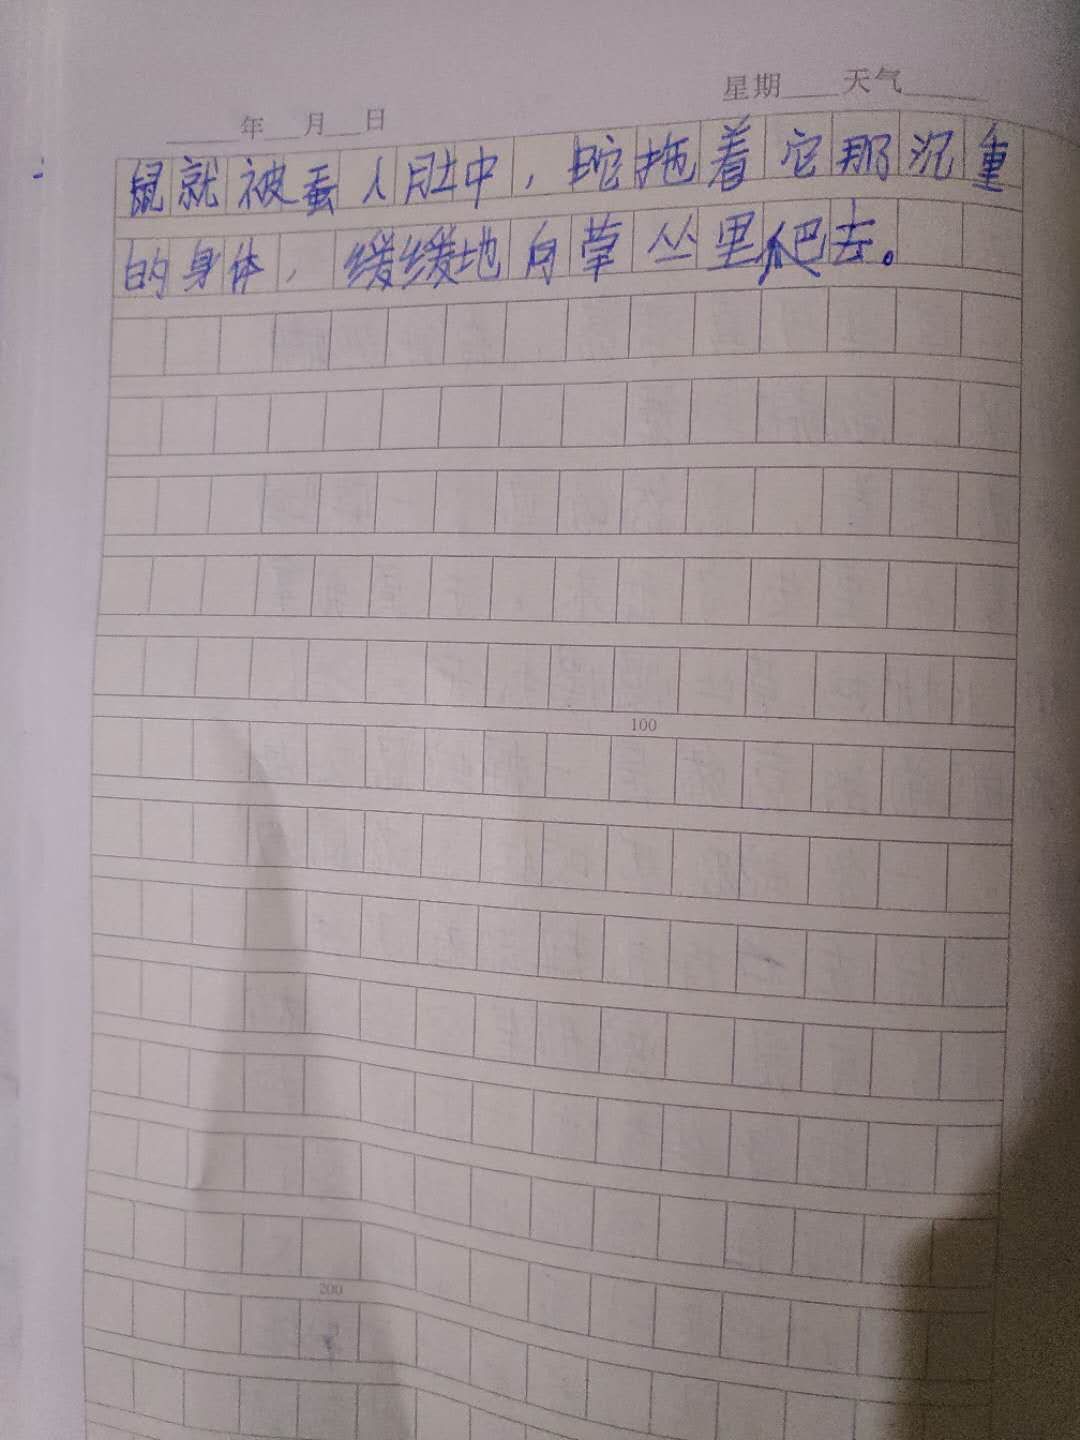 星期 天气
年 月 日
鼠就被蚕人肚中，蛇拖着它那沉重
的身体，缓缓地向草丛里爬去。
100
200